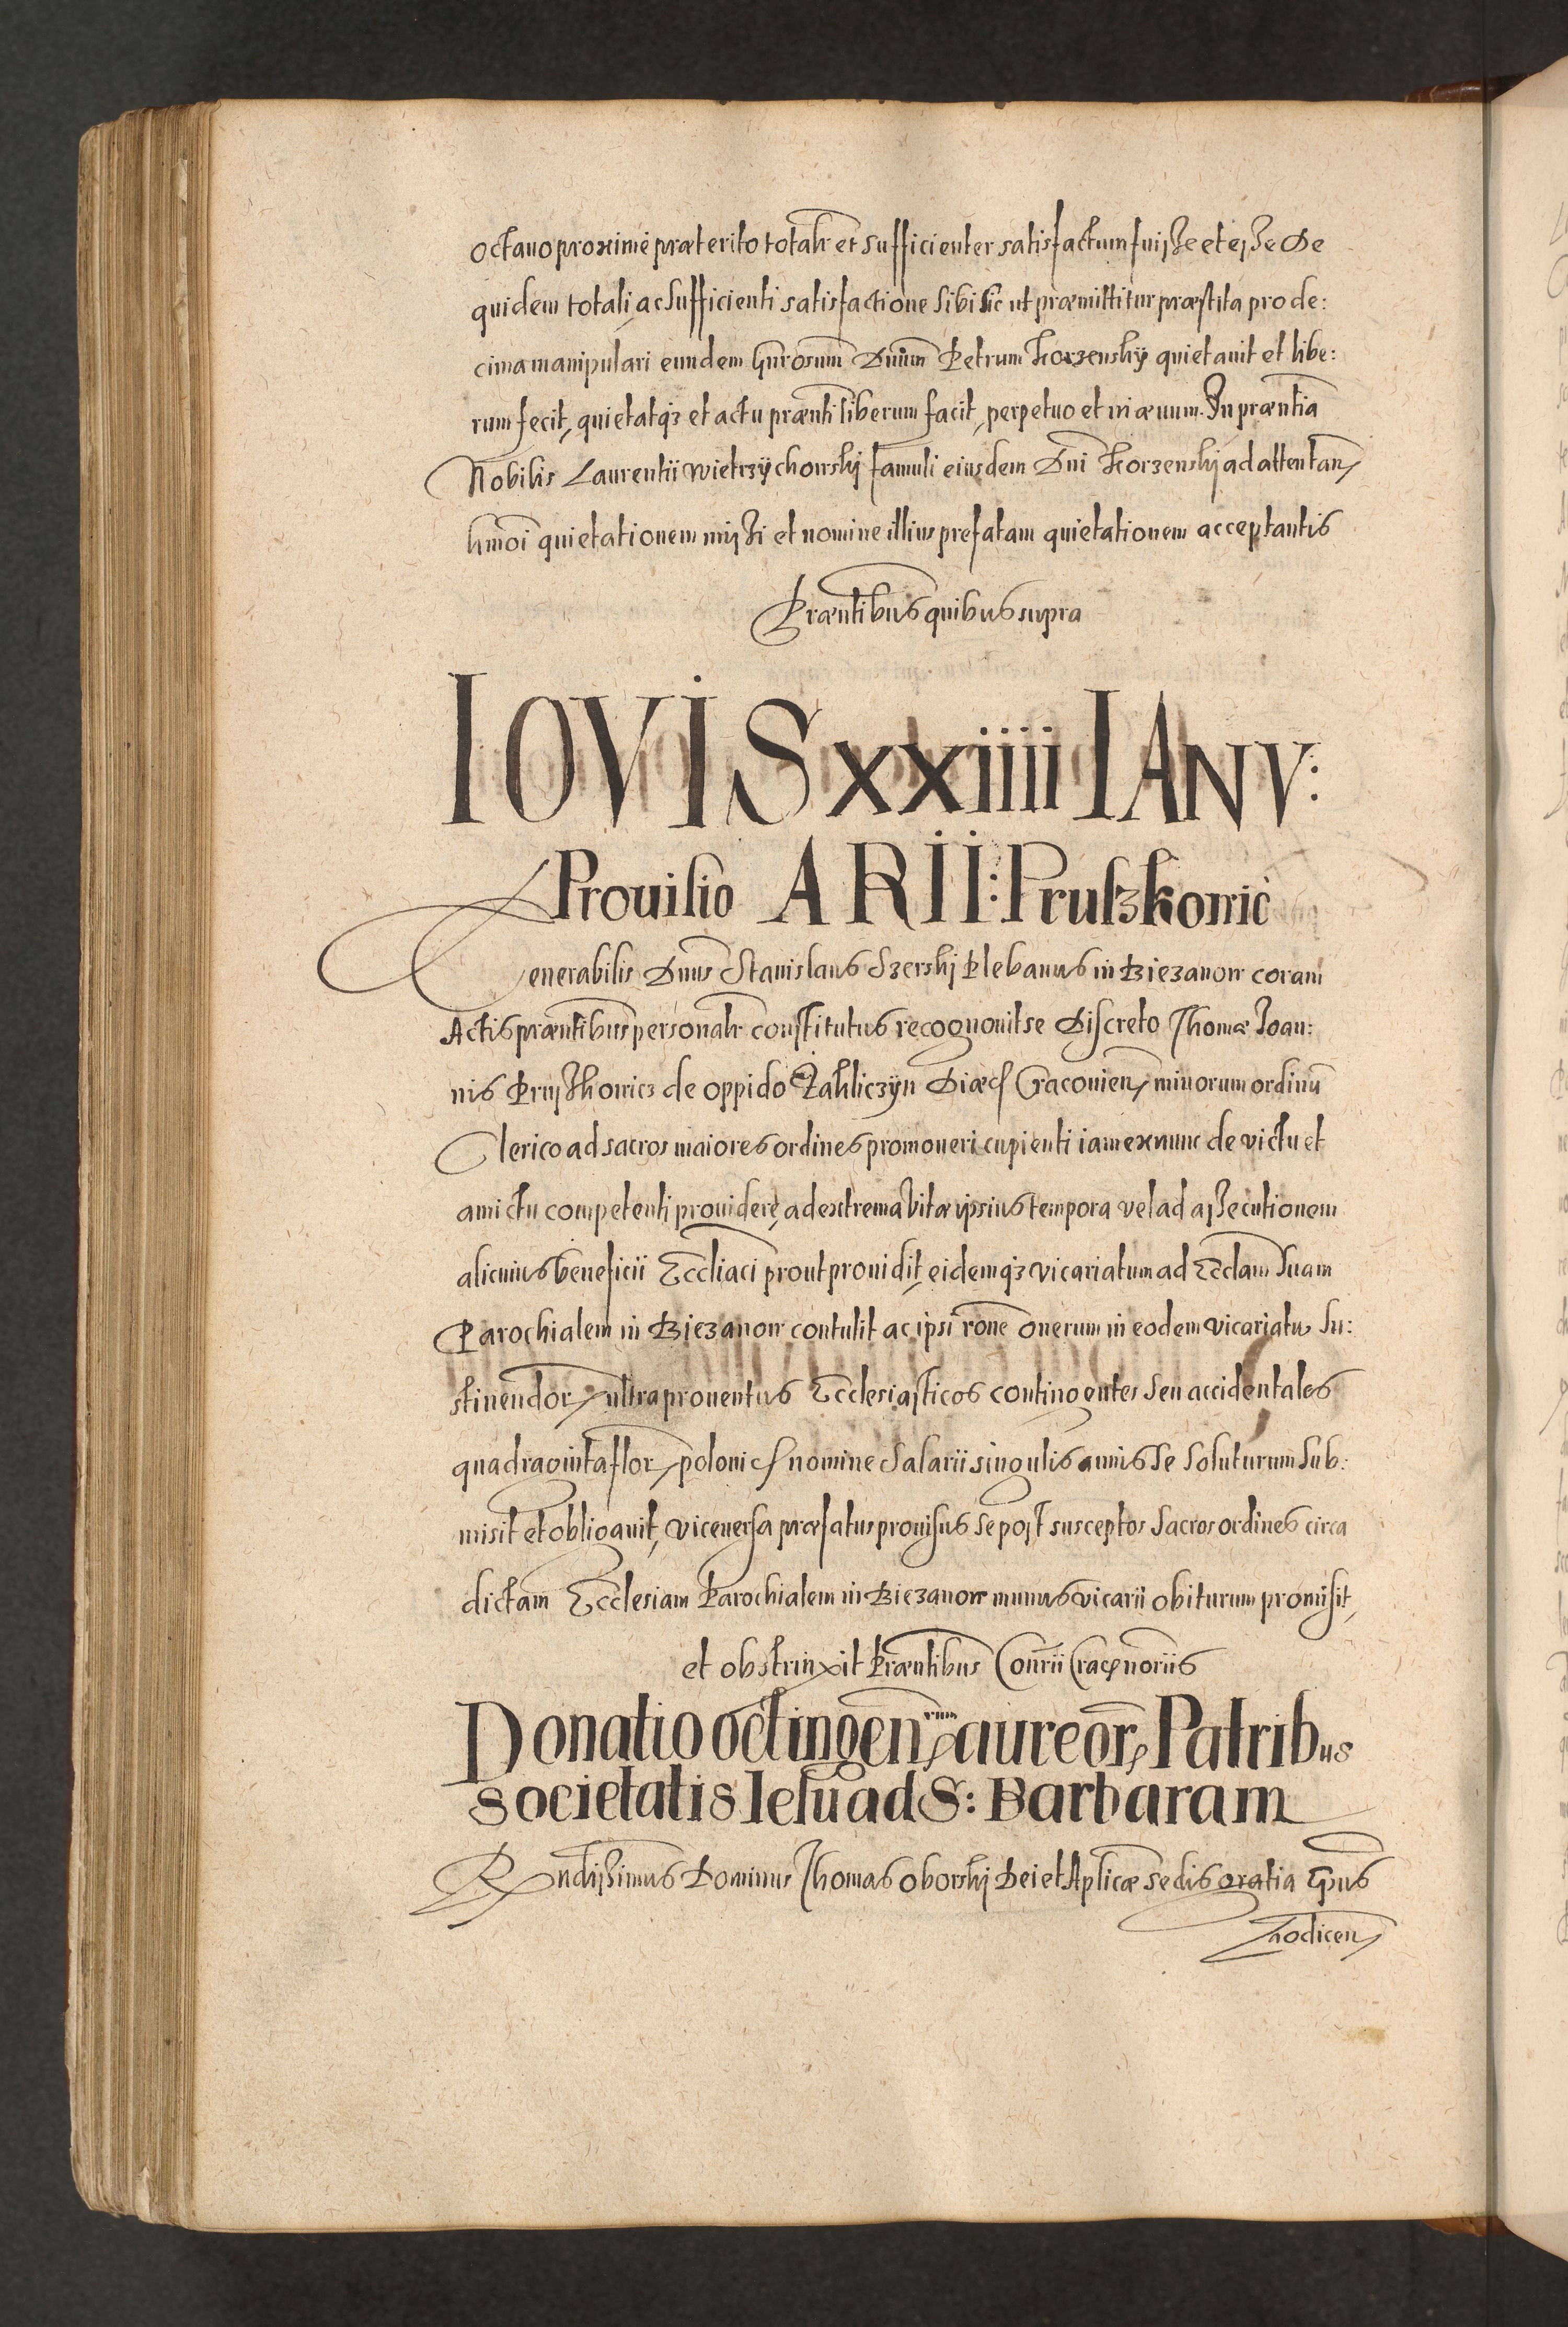 octauo proxime præterito totalr et sufficienter satisfactum fuisse et esse De
quidem totali, ac sufficienti satisfactione sibi sic ut præmittitur præstita pro de:
cima manipulari eundem Gnrosum Dnum Petrum Korzenskÿ quietauit et libe:
rum fecit, quietatqз et actu prænti liberum facit, perpetuo et in æuum. In præntia
Nobilis Laurentii Wietrzÿchowskj famuli eiusdem Dni Korzenskj ad attentan
hmoi quietationem missi et nomine illius prefatam quietationem acceptantis
Præntibus quibus supra
IOVIS xxiiii IANV:
Prouisio ARII: Pruszkowic
Venerabilis Dnus Stanislaus Szerskj Plebanus in Biezanow coram
Actis præntibus personalr constitutus recognouit se Discreto Thomæ Joan:
nis Prusskowicz de oppido Zakliczÿn Diæc Cracouien minorum ordinū
Clerico ad sacros maiores ordines promoueri cupienti iam ex nunc de victu et
amictu competenti prouidere, ad extrema vitæ ipsius tempora vel ad assecutionem
alicuius beneficii Eccliaci prout prouidit, eidemqз vicariatum ad Ecclam suam
Parochialem in Biezanow contulit ac ipsi rone onerum in eodem vicariatu su:
stinendor ultra prouentus Ecclesiasticos contingentes seu accidentales
quadraginta flor polonic nomine salarii singulis annis se soluturum sub:
misit et obligauit, viceuersa præfatus prouisus se post susceptos sacros ordines circa
dictam Ecclesiam Parochialem in Biezanow munus vicarii obiturum promisit,
et obstrinxit Præntibus
Donatio octingen rum aureor Patribus
societatis Iesu ad S: Barbaram
Rndissimus Dominus Thomas oborskj Dei et Aplicæ sedis gratia Epus
Laodicen